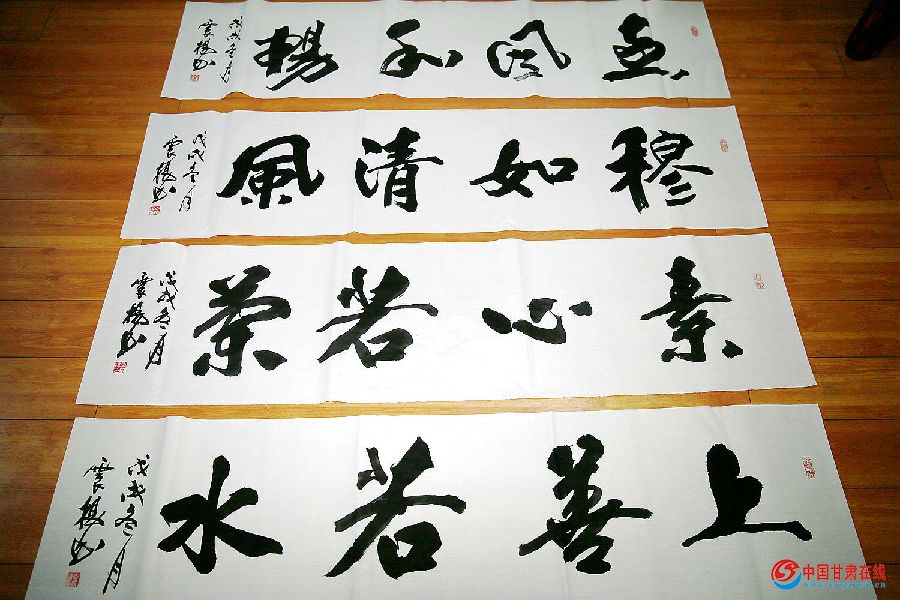 惠風和暢
戊戌冬月
雲 书
穆如清風
戊戌冬月
雲 书
素心若蘭
戊戌冬月
雲 书
上善若水
戊戌冬月
雲 书
中国甘肃在线